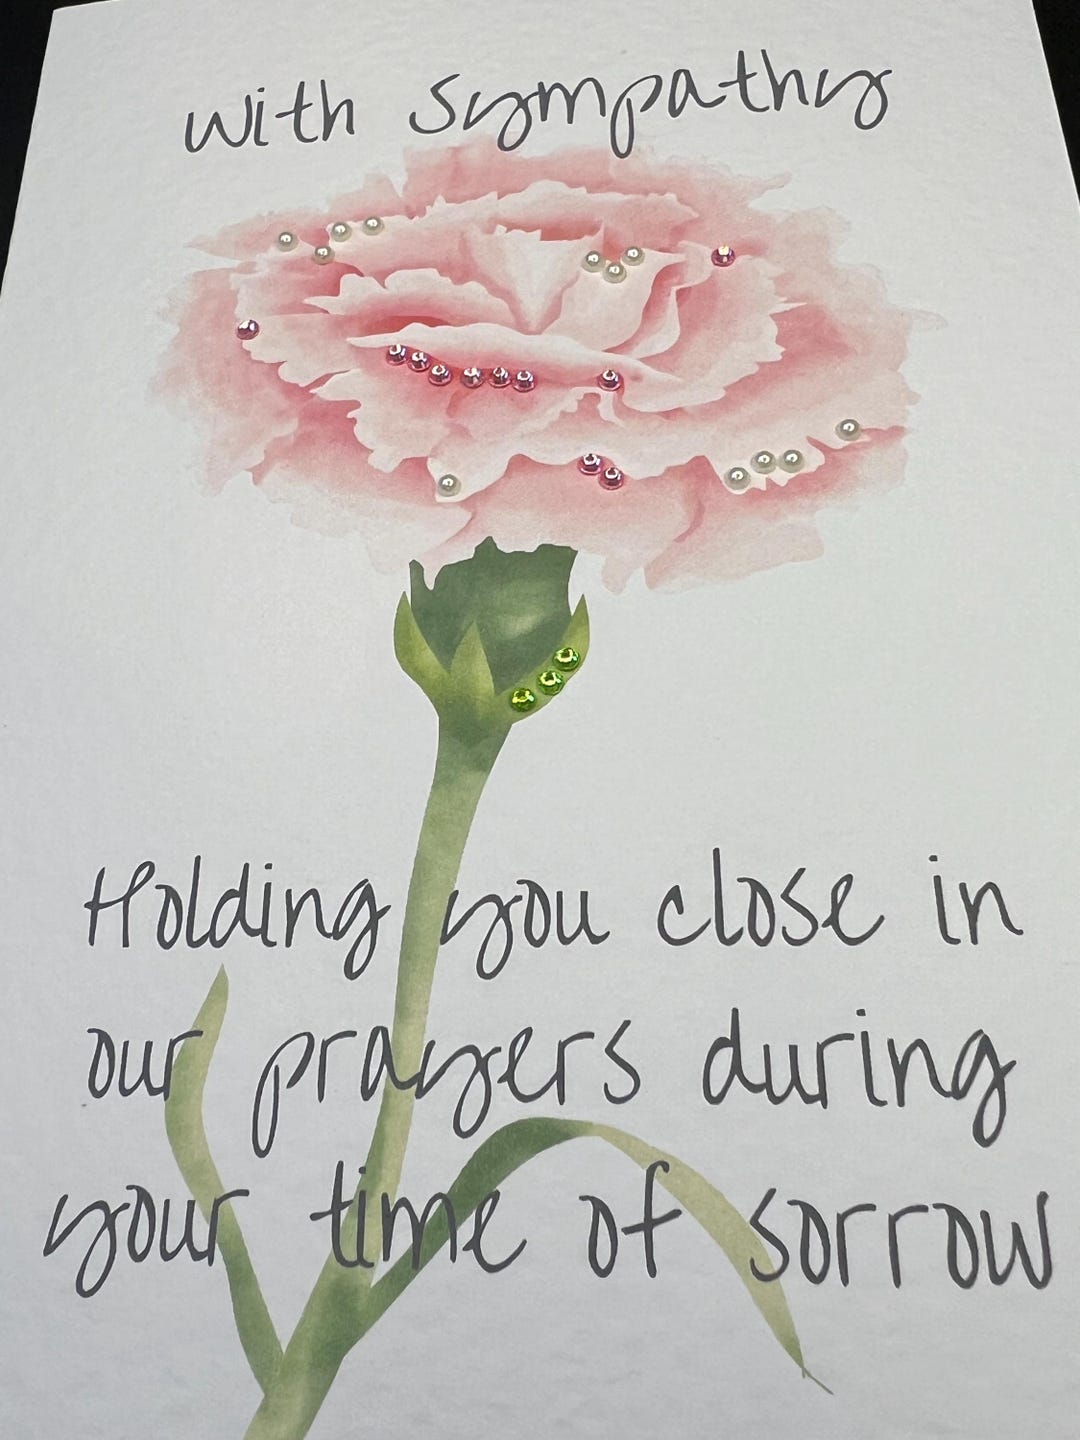 With Sympathy
Holding you close in
our prayers during
your time of sorrow